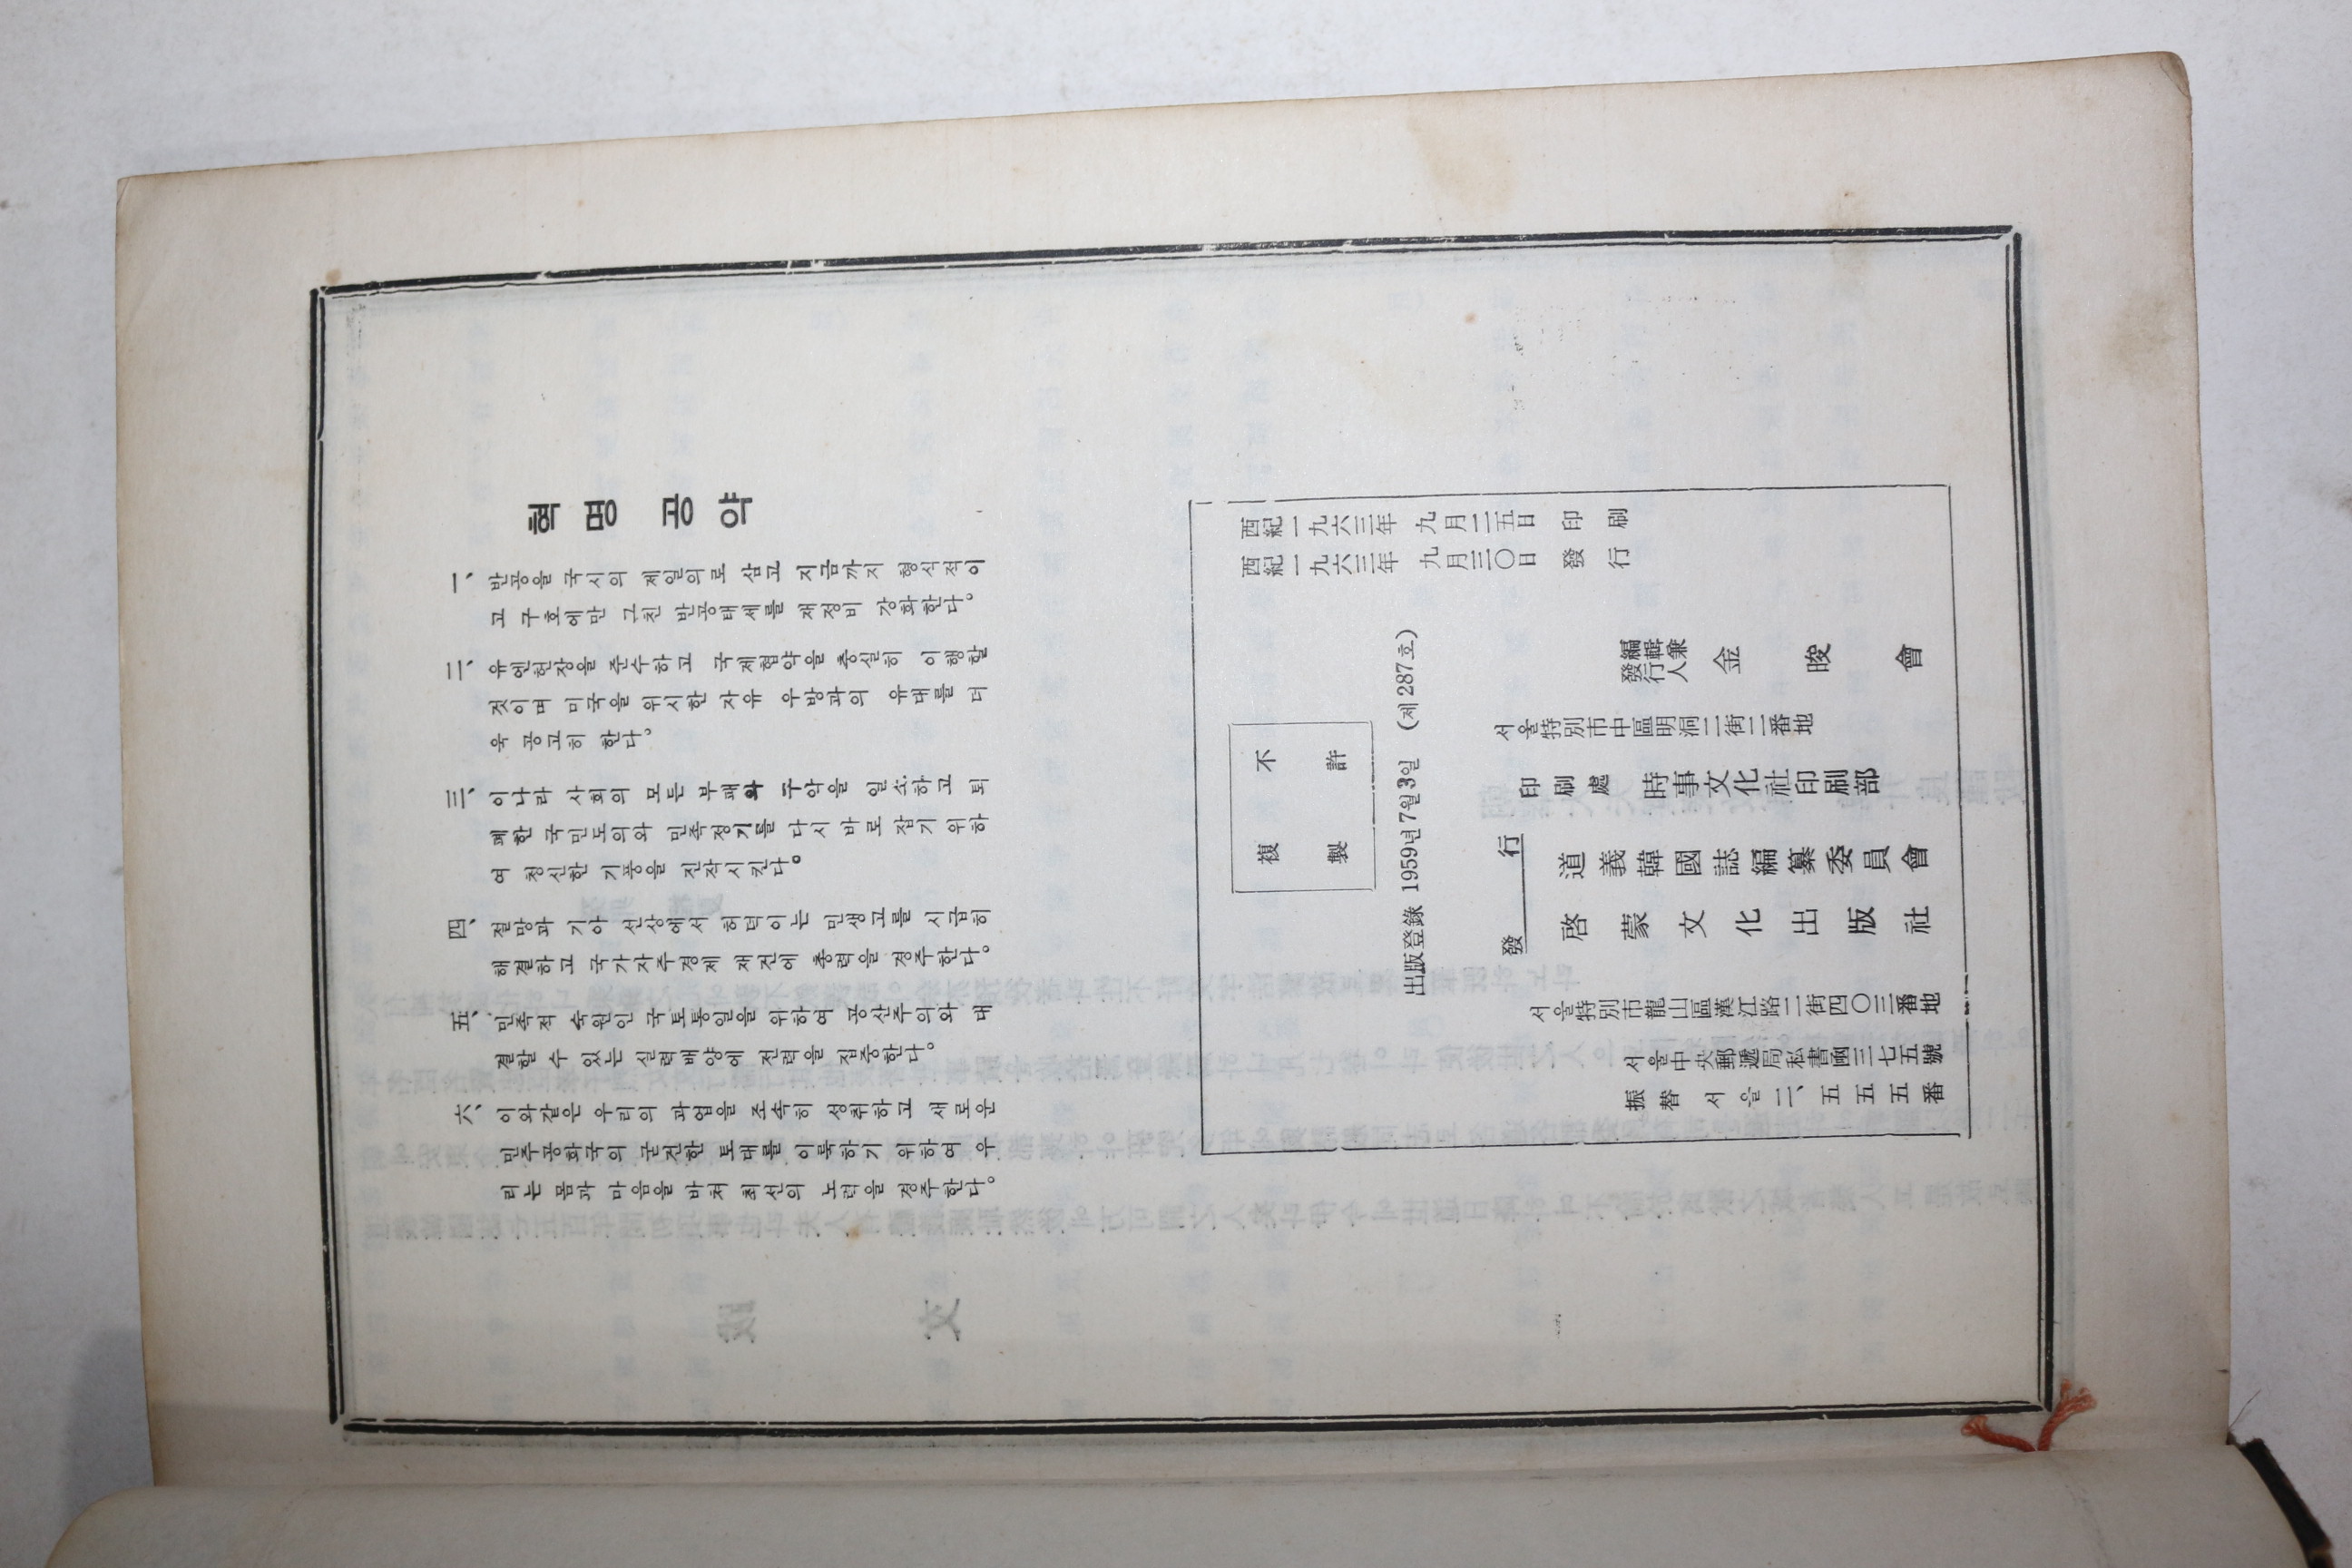 혁명 공약
一、 반공을 국시의 제일의로 삼고 지금까지 형식적이
고 구호에만 그친 반공태세를 재정비 강화한다。
二、 유엔헌장을 준수하고 국제협약을 충실히 이행할
것이며 미국을 위시한 자유 우방과의 유대를 더
욱 공고히 한다。
三、 이나라 사회의 모든 부패와 구악을 일소하고 퇴
폐한 국민도의와 민족정기를 다시 바로 잡기 위하
여 청신한 기풍을 진작시킨다。
四、 절망과 기아 선상에서 허덕이는 민생고를 시급히
해결하고 국가자주경제 재건에 총력을 경주한다。
五、 민족적 숙원인 국토통일을 위하여 공산주의와 대
결할 수 있는 실력배양에 전력을 집중한다。
六、 이와같은 우리의 과업을 조속히 성취하고 새로운
민주공화국의 굳건한 토대를 이룩하기 위하여 우
리는 몸과 마음을 바쳐 최선의 노력을 경주한다。
西紀一九六三年 九月二五日 印刷
西紀一九六三年 九月三〇日 發行
不許
複製
出版登錄 1959년7월3일 (제287호)
編輯兼
發行人 金晙會
서울特別市中區明洞二街二番地
印刷處 時事文化社印刷部
發行
道義韓國誌編纂委員會
啓蒙文化出版社
서울特別市龍山區漢江路二街四〇三番地
서울中央郵遞局私書函三七五號
振替 서울二、五五五番